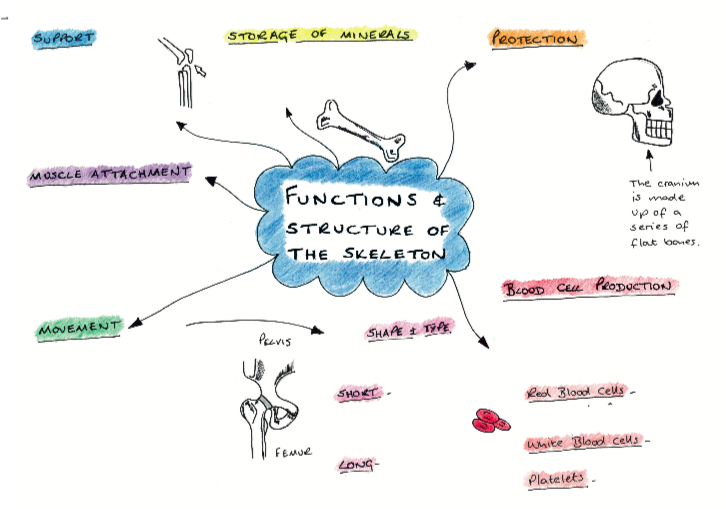 SUPPORT
STORAGE OF MINERALS
PROTECTION
MUSCLE ATTACHMENT
FUNCTIONS &
STRUCTURE OF
THE SKELETON
The cranium
is made
up of a
series of
flat bones.
BLOOD CELL PRODUCTION
MOVEMENT
SHAPE & TYPE
PELVIS
SHORT -
Red Blood Cells -
FEMUR
White Blood Cells -
LONG -
Platelets -